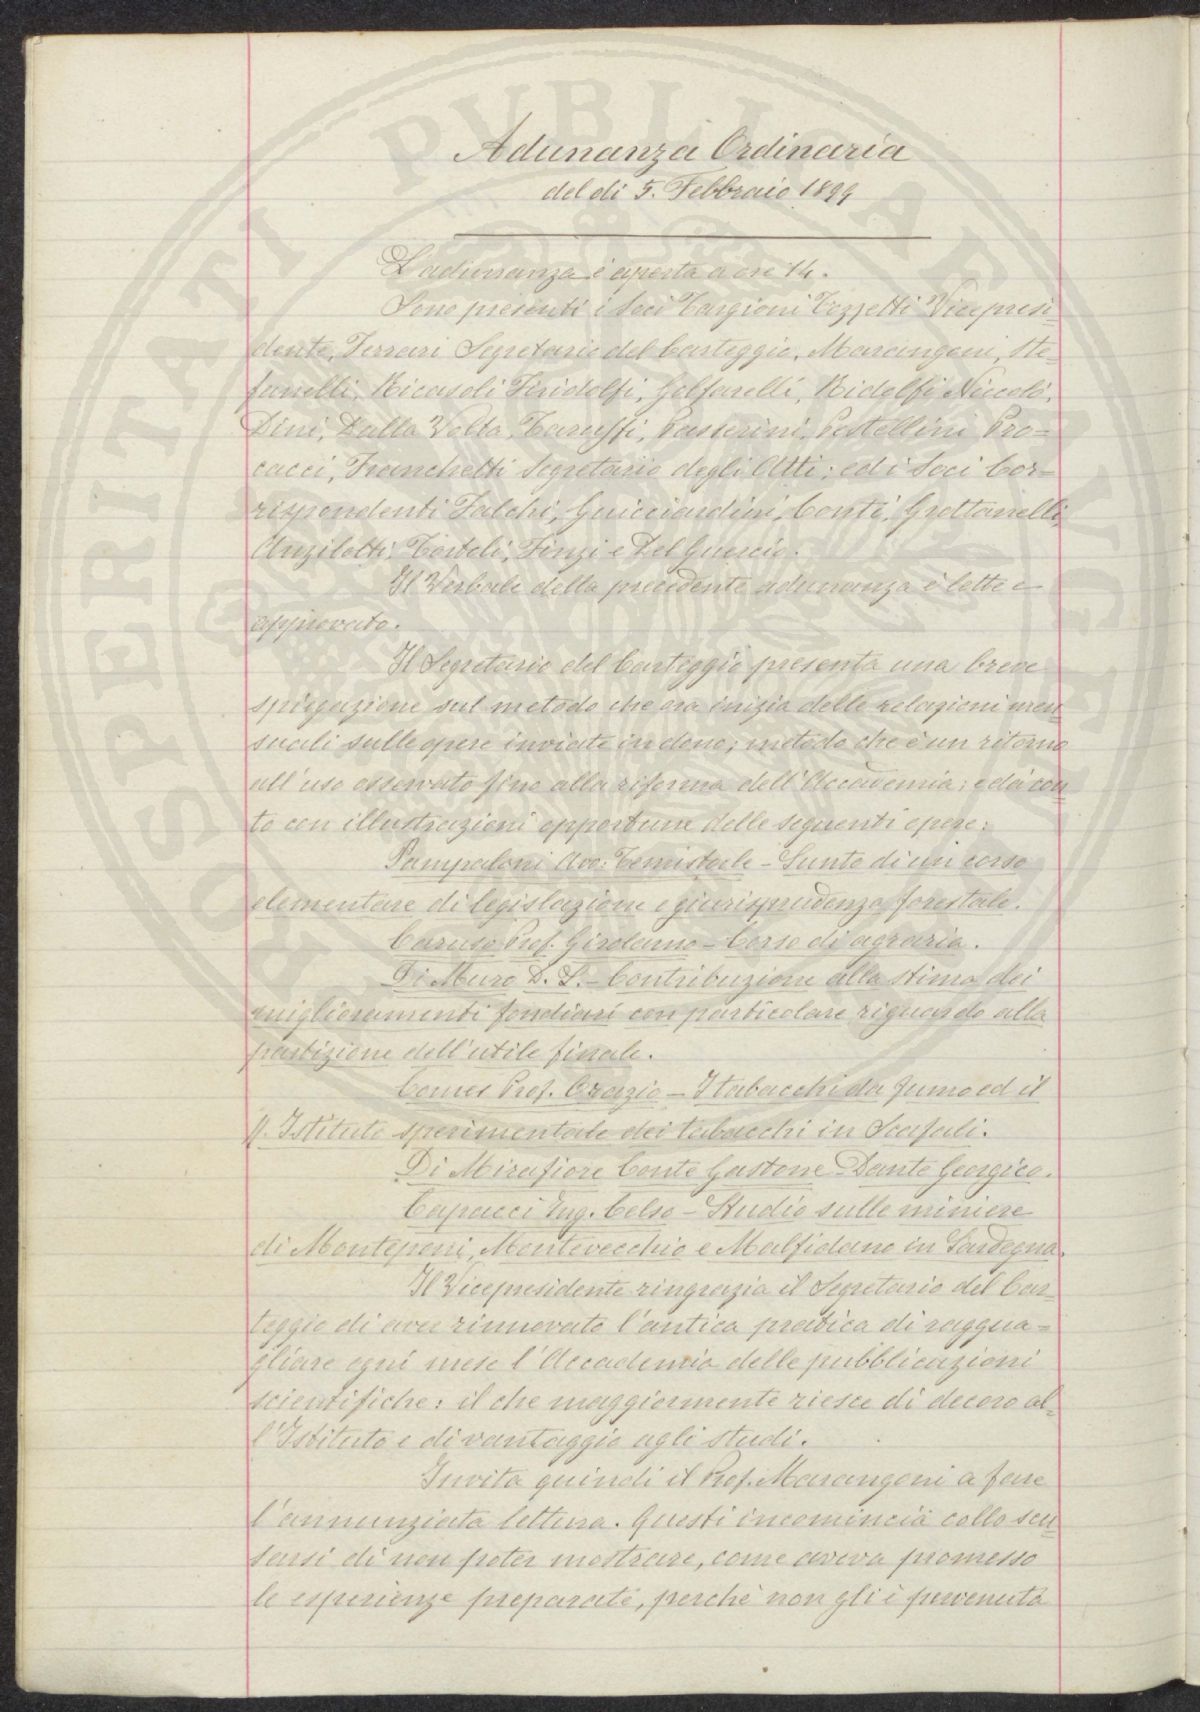 Adunanza Ordinaria
del dì 5. Febbraio 1899
L'adunanza è aperta a ore 14.
Sono presenti i Soci Targioni Tozzetti Vicepresi-
dente, Ferrari Segretario del Carteggio, Marangoni, Ste-
fanelli, Ricasoli Firidolfi, Golfarelli, Ridolfi Niccolò,
Dini, Dalla Volta, Taruffi, Passerini, Pestellini, Pro-
cacci, Franchetti Segretario degli Atti; ed i Soci Cor-
rispondenti Falchi, Guicciardini, Conti, Grottanelli,
Anzilotti, Bartoli, Finzi e Del Guercio.
Il Verbale della precedente adunanza è letto e
approvato.
Il Segretario del Carteggio presenta una breve
spiegazione sul metodo che ora inizia delle relazioni men-
suali sulle opere inviate in dono; metodo che è un ritorno
all'uso osservato fino alla riforma dell'Accademia; e dà con-
to con illustrazioni opportune delle seguenti opere:
Pampaloni Avv: Temistocle - Sunto di un corso
elementare di legislazione e giurisprudenza forestale.
Caruso Prof. Girolamo - Corso di agraria.
Di Muro D. L. - Contribuzione alla stima dei
miglioramenti fondiari con particolare riguardo alla
partizione dell'utile finale.
Comes Prof. Orazio - I tabacchi da fumo ed il
R. Istituto sperimentale dei tabacchi in Scafati.
Di Mirafiore Conte Gastone - Dante Georgico.
Capacci Ing. Celso - Studio sulle miniere
di Monteponi, Montevecchio e Malfidano in Sardegna.
Il Vicepresidente ringrazia il Segretario del Car-
teggio di aver rinnovato l'antica pratica di raggua-
gliare ogni mese l'Accademia delle pubblicazioni
scientifiche: il che maggiormente riesce di decoro al-
l'Istituto e di vantaggio agli studi.
Invita quindi il Prof. Marangoni a fare
l'annunziata lettura. Questi incomincia collo scu-
sarsi di non poter mostrare, come aveva promesso
le esperienze preparate, perchè non gli è pervenuta
SPERITATI PVBLICAE AVGEN